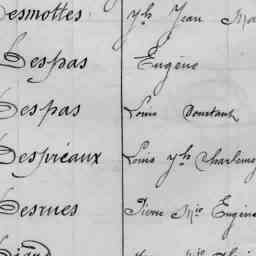 Desmottes yh Jean Ma
Despas Eugène
Despas Louis Constant
Despréaux Louis yh Charlemag
Desrues Pierre Mie Eugène